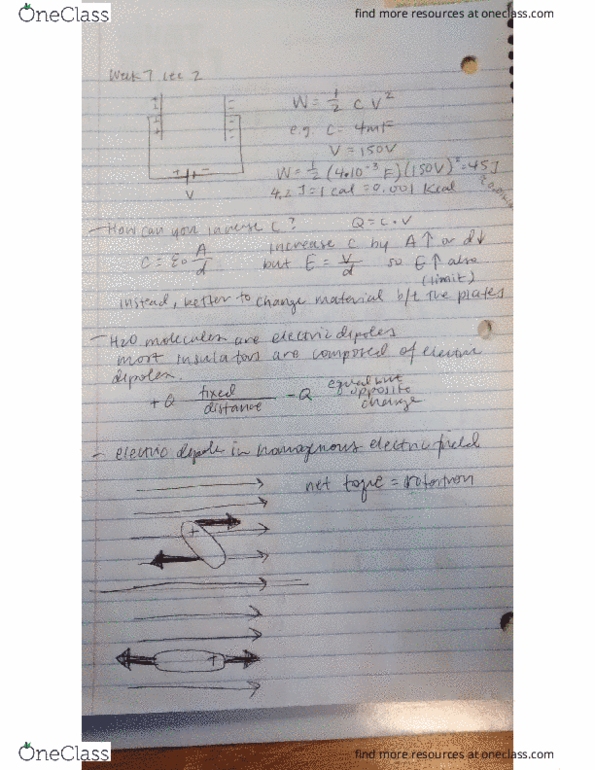 OneClass
find more resources at oneclass.com
Week 7 Lec 2
W = 1/2 C V²
e.g. C = 4mF
V = 150V
W = 1/2 (4·10⁻³ F)(150V)² = 45J
4.2 J = 1 cal = 0.001 Kcal
V
- How can you increase C? Q = C · V
C = ε₀ A/d increase C by A↑ or d↓
but E = V/d so E↑ also
(limit)
instead, better to change material b/t the plates
- H2O molecules are electric dipoles
most insulators are composed of electric
dipoles.
+Q fixed distance -Q equal but opposite charge
- electric dipole in homogenous electric field
net toque = rotation
+
+
OneClass
find more resources at oneclass.com